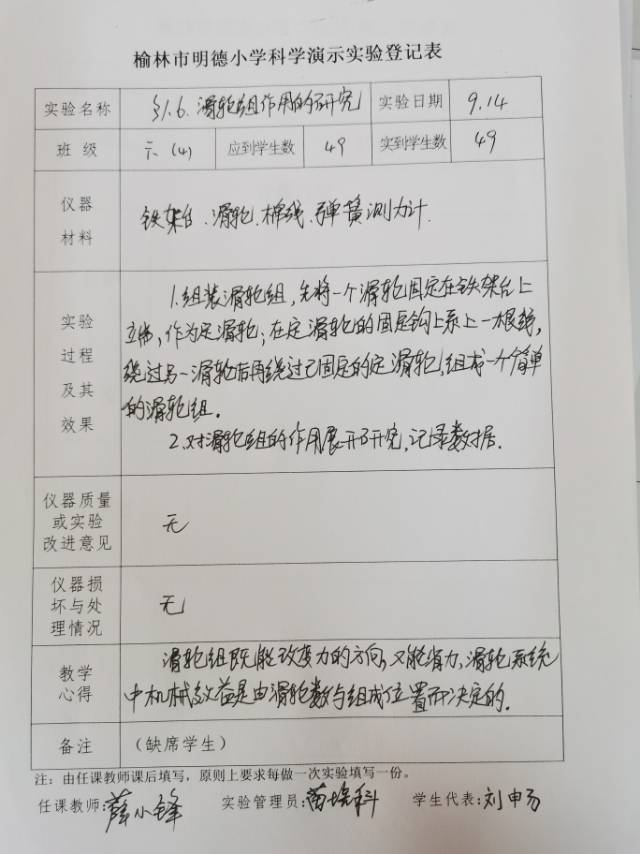 榆林市明德小学科学演示实验登记表
实验名称 §1.6. 滑轮组作用的研究 实验日期 9.14
班 级 六 (4) 应到学生数 49 实到学生数 49
仪器
材料
铁架台、滑轮、棉线、弹簧测力计.
实验
过程
及其
效果
1.组装滑轮组,先将一个滑轮固定在铁架台上
立端,作为定滑轮;在定滑轮的固定钩上系上一根线,
绕过另一滑轮后再绕过已固定的定滑轮,组成一个简单
的滑轮组.
2.对滑轮组的作用展开研究,记录数据.
仪器质量
或实验
改进意见
无
仪器损
坏与处
理情况
无
教学
心得
滑轮组既能改变力的方向,又能省力,滑轮系统
中机械效益是由滑轮数与组成位置而决定的.
备注 (缺席学生)
注:由任课教师课后填写,原则上要求每做一次实验填写一份。
任课教师:薛小锋 实验管理员:苗 科 学生代表:刘申